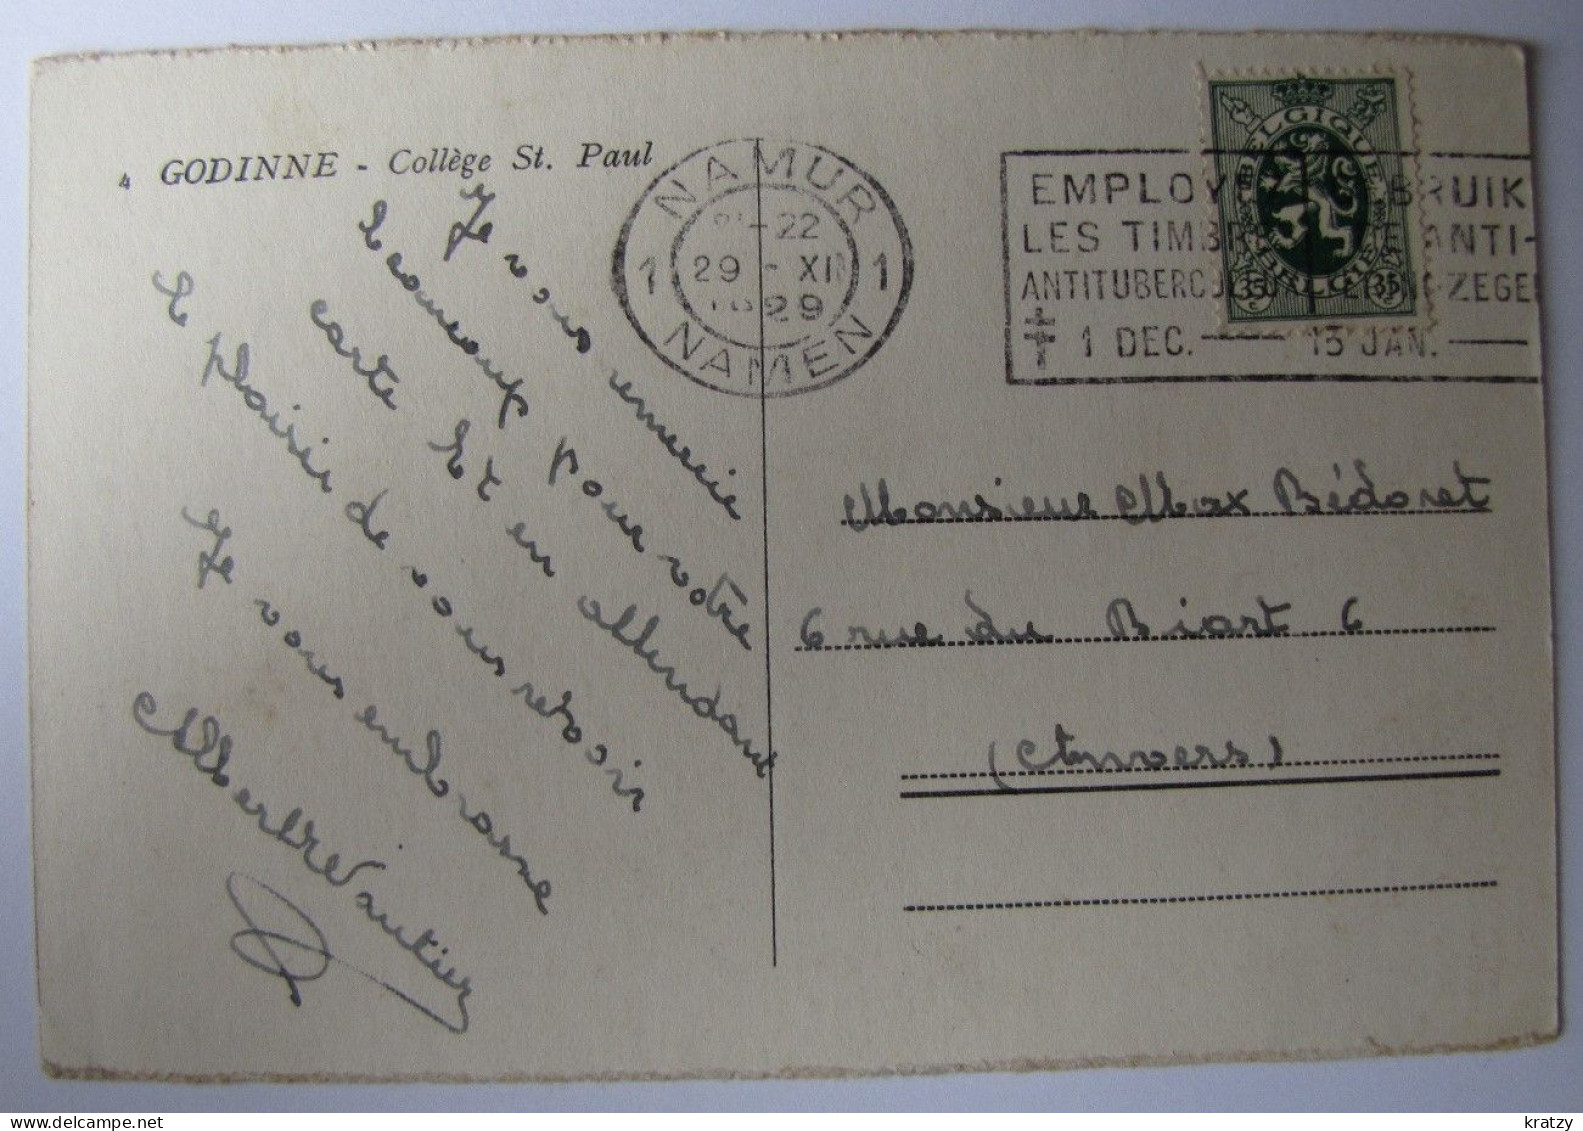 4 GODINNE - Collège St. Paul
Je vous remercie
beaucoup pour votre
carte Et en attendant
le plaisir de vous revoir
Je vous embrasse
Albert Vautier
NAMUR
22
1 29 - XII 1
1929
NAMEN
EMPLOY BRUIK
LES TIMBRE ANTI-
ANTITUBERC ZEGE
1 DEC. 13 JAN.
BELGIQUE
BELGIË
35 c 35 c
Monsieur Max Bédoret
6 rue du Biart 6
(Anvers)
www.delcampe.net
kratzy